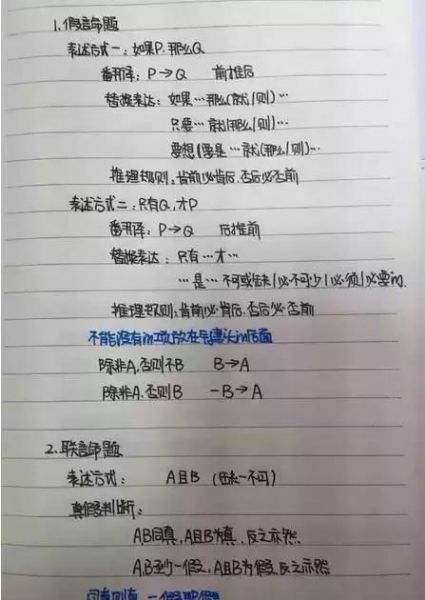 1.假言命题
表达方式一：如果P.那么Q
翻译：P→Q 前推后
替换表达：如果…那么(就/则)…
只要…就(那么/则)…
要想(要是…就(那么/则)…
推理规则：肯前必肯后.否后必否前
表达方式二：只有Q,才P
翻译：P→Q 后推前
替换表达：只有…才…
…是…不可或缺/必不可少/必须/必要的.
推理规则：肯前必肯后.否后必否前
不能没有的项放在箭头的后面
除非A.否则不B B→A
除非A.否则B -B→A
2.联言命题
表达方式：A且B (缺一不可)
真假判断：
AB同真,A且B为真,反之亦然.
A.B至少一假,A且B为假,反之亦然
同真则真 一假即假